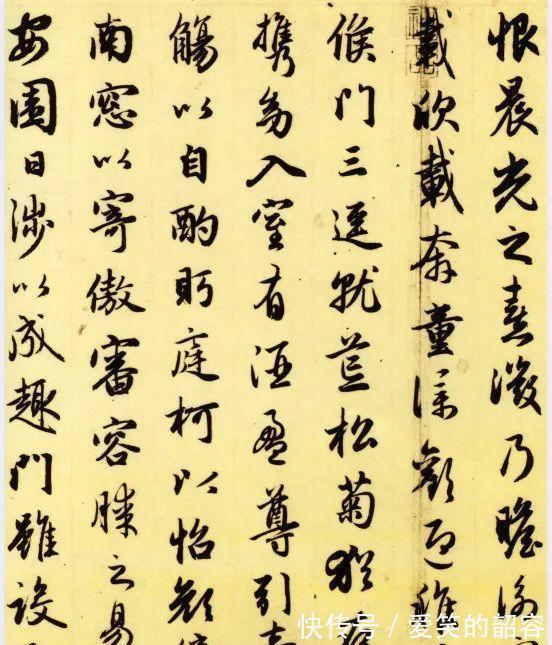 恨晨光之熹微乃瞻衡
載欣載奔童僕歡迎稚
候門三逕就荒松菊猶
攜幼入室有酒盈尊引
觴以自酌眄庭柯以怡顏
南窓以寄傲審容膝之易
安園日涉以成趣門雖設
快传号 / 爱笑的韶容